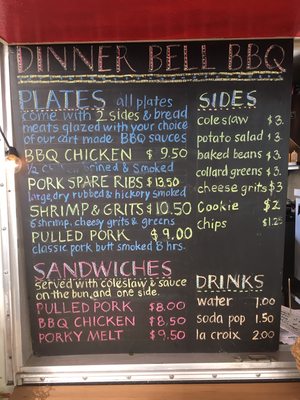 DINNER BELL BBQ
PLATES all plates
come with 2 sides & bread
meats glazed with your choice
of our cart made BBQ sauces
BBQ CHICKEN $ 9.50
1/2 & smoked
PORK SPARE RIBS $13.50
large, dry rubbed & hickory smoked
SHRIMP & GRITS $10.50
6 shrimp, cheesy grits & greens
PULLED PORK $ 9.00
classic pork butt smoked 8 hrs.
SANDWICHES
served with coleslaw & sauce
on the bun, and one side.
PULLED PORK $8.00
BBQ CHICKEN $8.50
PORKY MELT $9.50
SIDES
coleslaw $3.
potato salad $3.
baked beans $3.
collard greens $3.
cheese grits $3
cookie $2
chips $1.25
DRINKS
water 1.00
soda pop 1.50
la croix 2.00